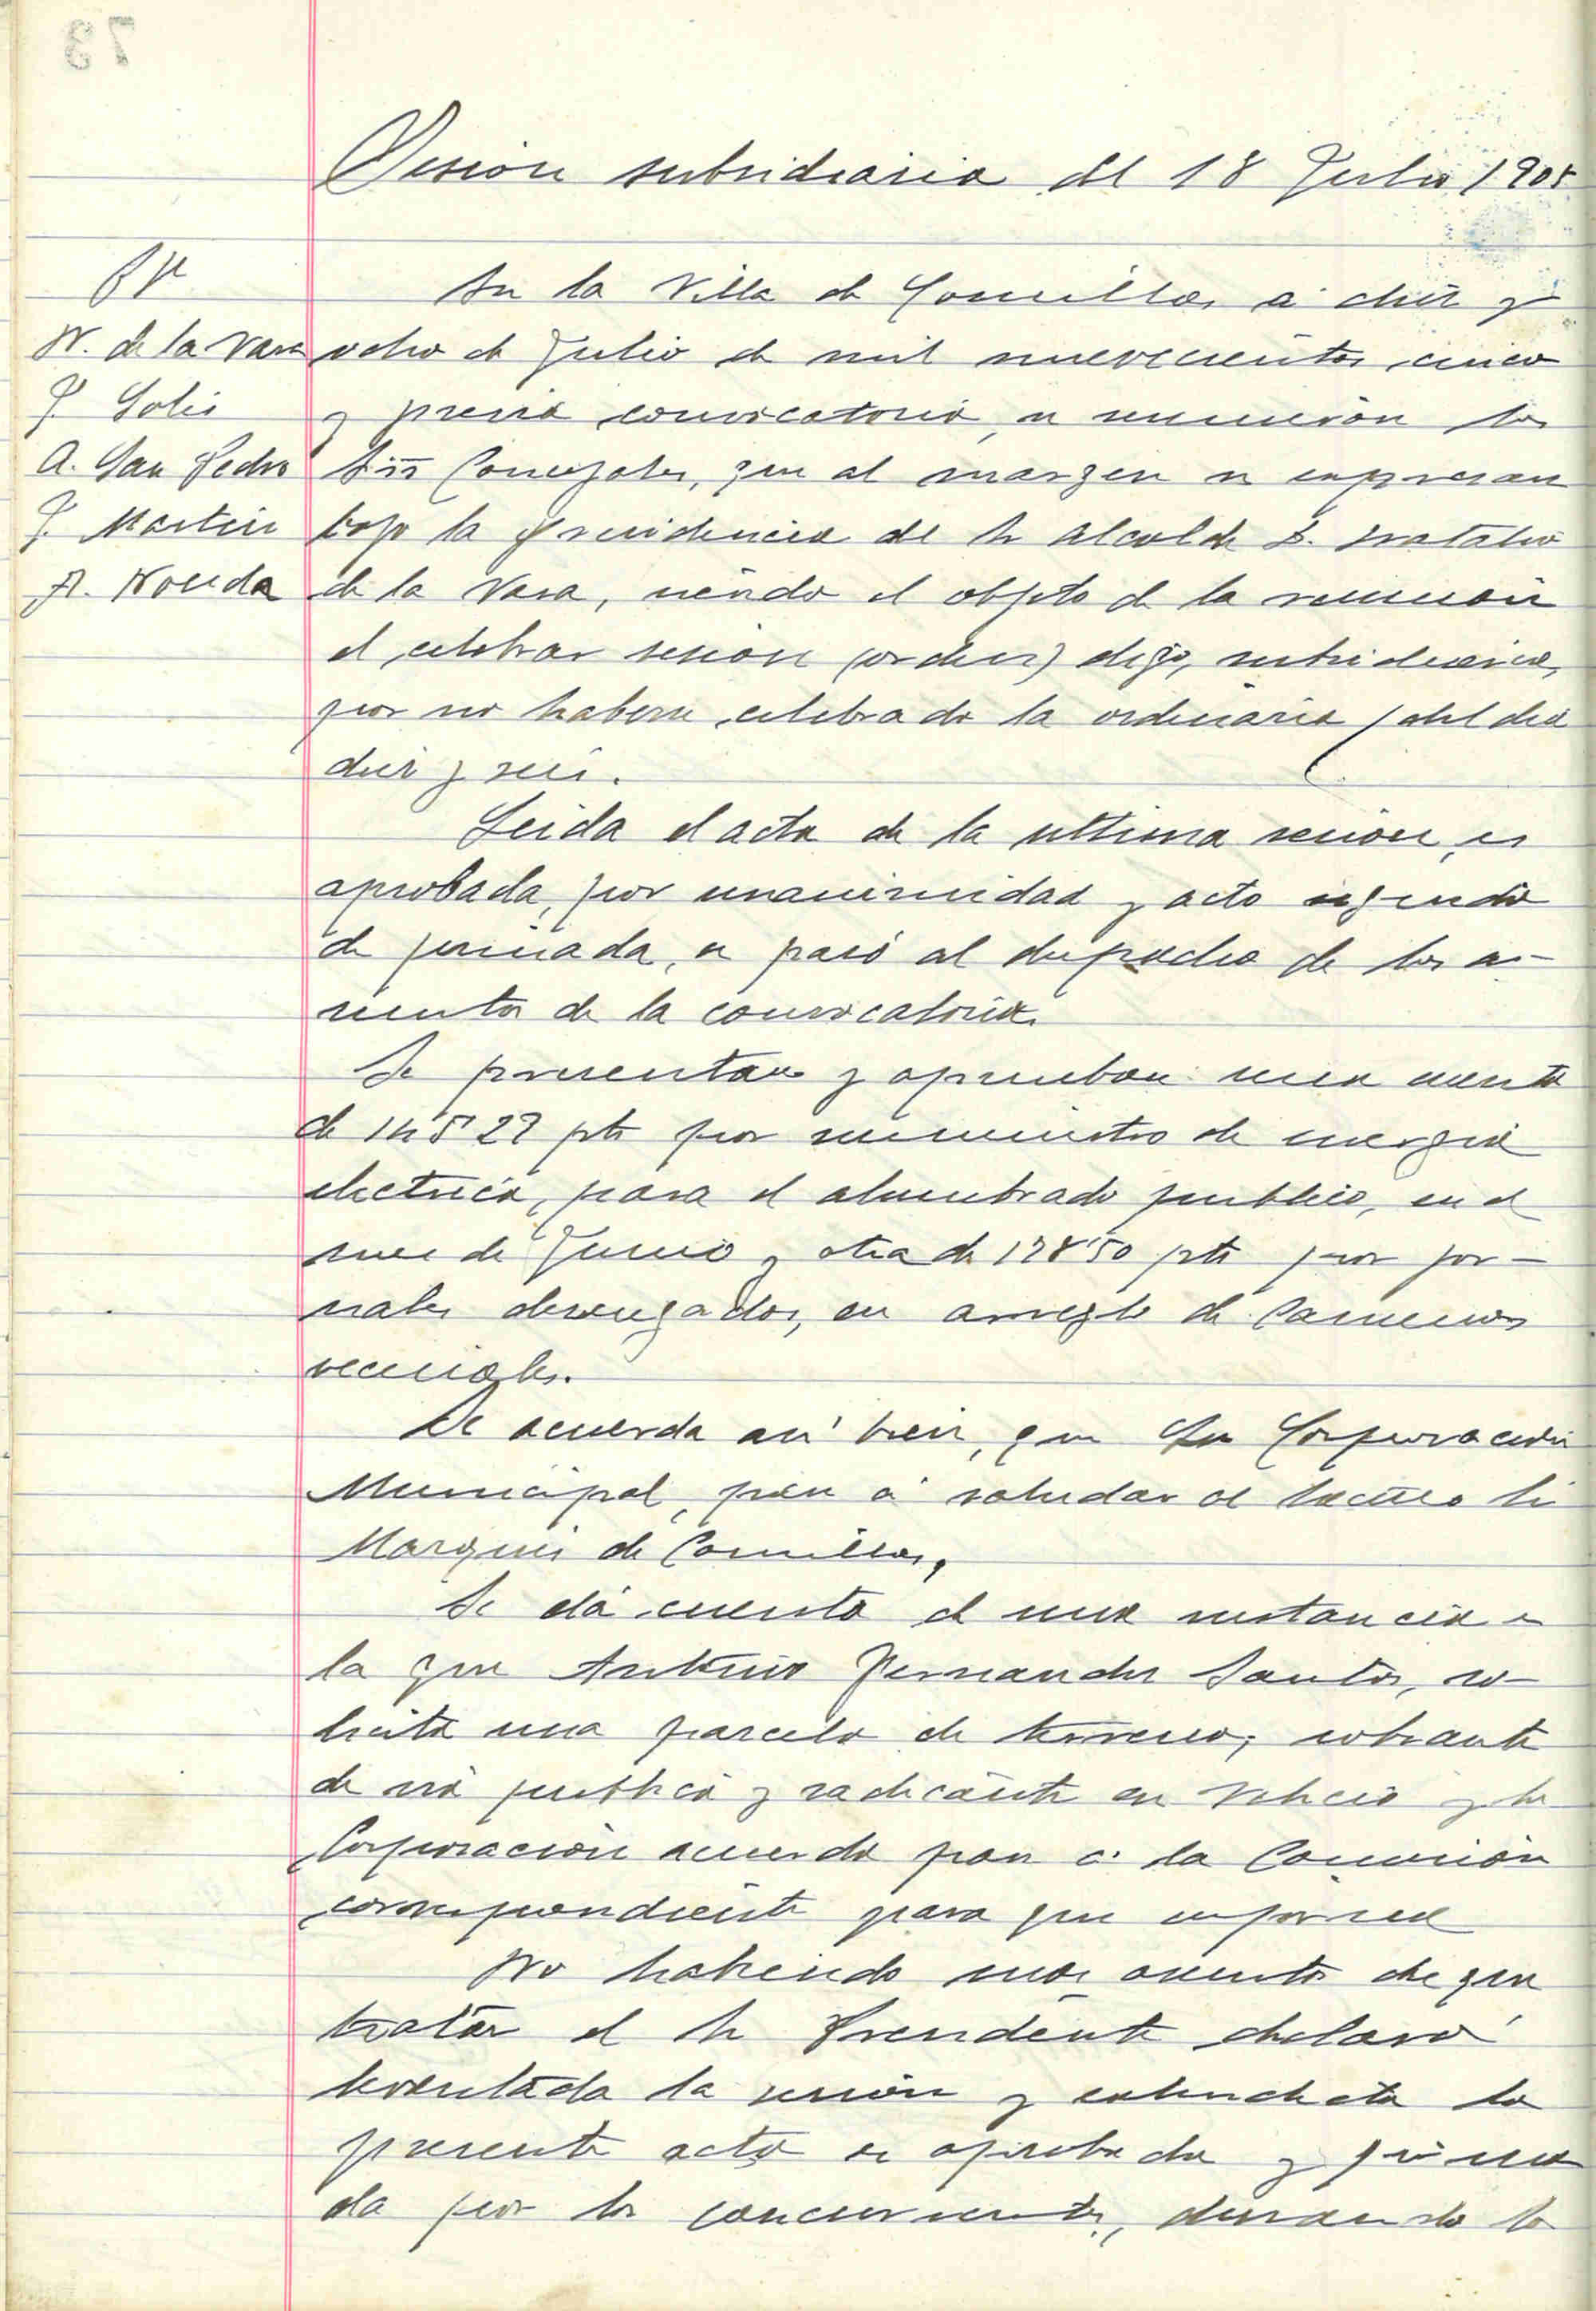 73
Sesion subsidiaria del 18 Julio 1905
SS
N. de la Vara
J. Solis
A. San Pedro
J. Martin
A. Noceda
En la Villa de Comillas a diez y
ocho de Julio de mil novecientos cinco
y previa convocatoria, se reunieron los
Sres Concejales, que al margen se expresan
bajo la Presidencia del Sr Alcalde D. Natalio
de la Vara, siendo el objeto de la reunion
el celebrar sesion (ordin) digo, subsidiaria,
por no haberse celebrado la ordinaria del dia
diez y seis.
Leida el acta de la ultima sesion, es
aprobada, por unanimidad y acto seguido
de firmada, se pasó al despacho de los a-
suntos de la convocatoria.
Se presentan y aprueban una cuenta
de pts por suministro de energia
electrica, para el alumbrado publico, en el
mes de Junio y otra de 128'50 pts por jor-
nales devengados, en arreglo de Caminos
vecinales.
Se acuerda asi bien, que la Corporacion
Municipal, pase a saludar al Excmo Sr
Marques de Comillas.
Se dá cuenta de una instancia en
la que Antonio Fernandez Santos, so-
licita una parcela de terreno, sobrante
de via publica y radicante en Velecio y la
Corporacion acuerda pase a la Comision
correspondiente para que informe
No habiendo mas asuntos de que
tratar el Sr Presidente declaró
levantada la sesion y extendida la
presente acta es aprobada y firma
da por los concurrentes, durando la